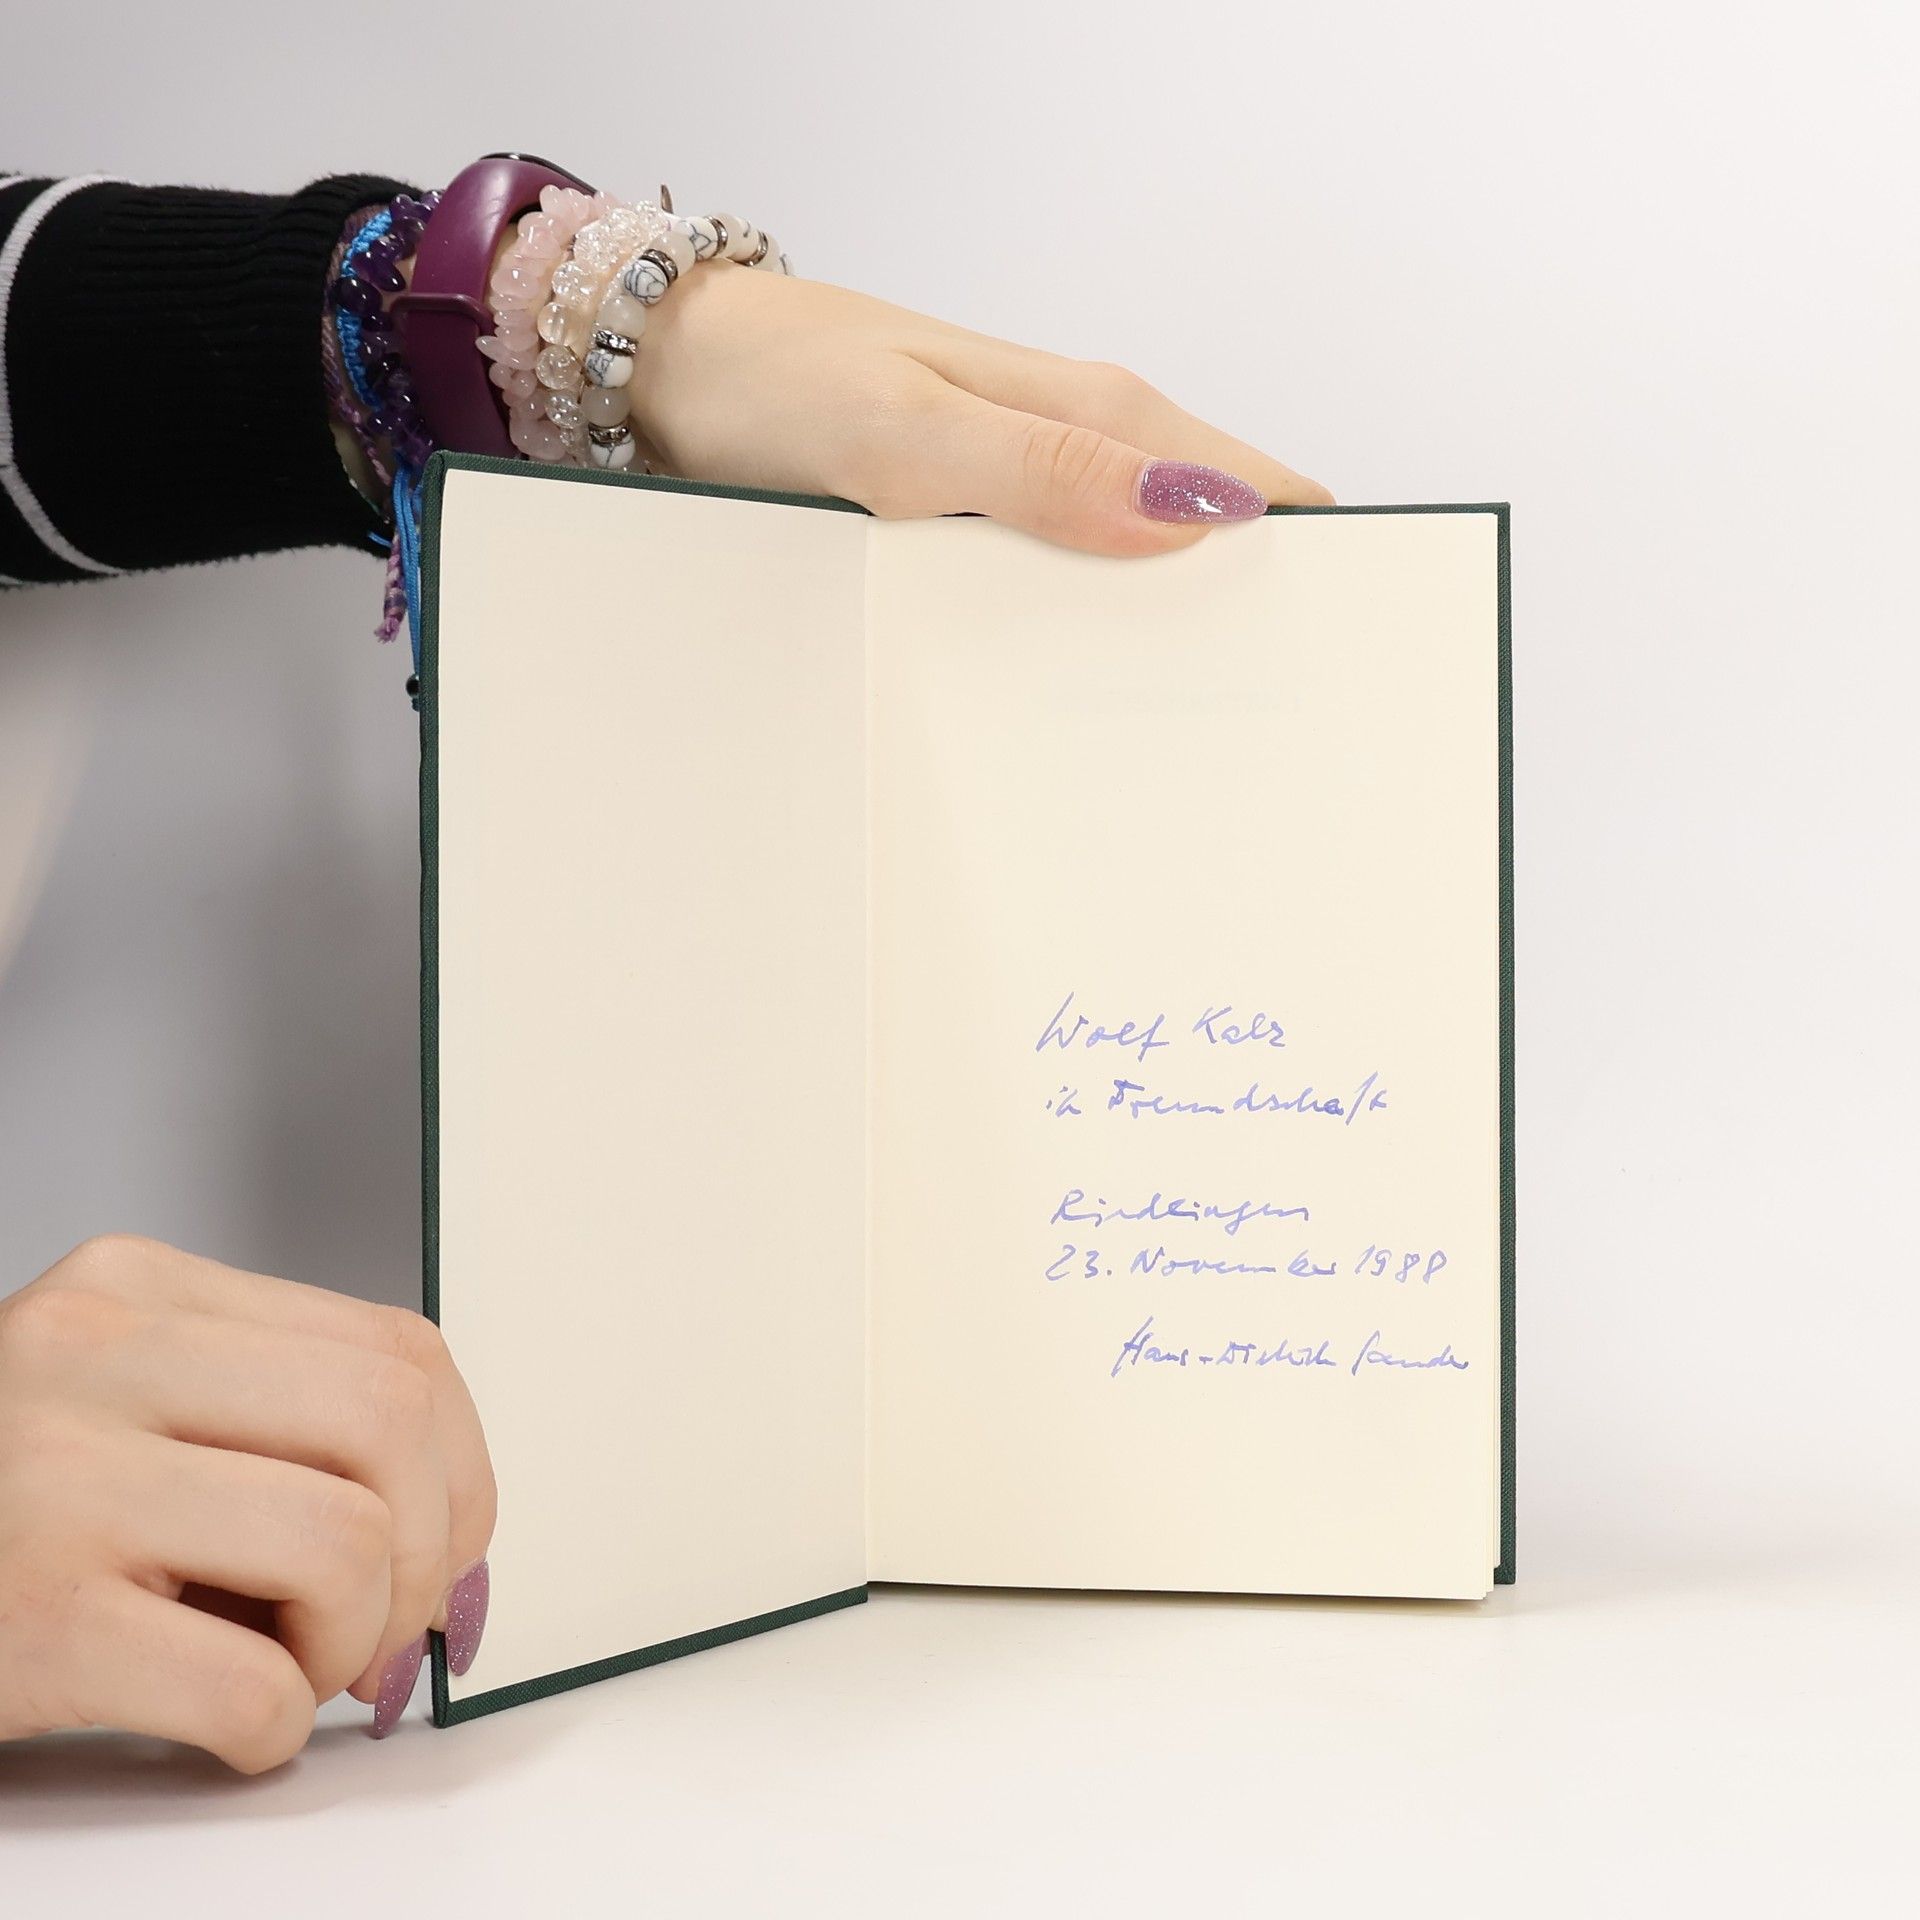 Wolf Kalz
in Freundschaft
Riedlingen
23. November 1988
Hans-Dietrich Sander